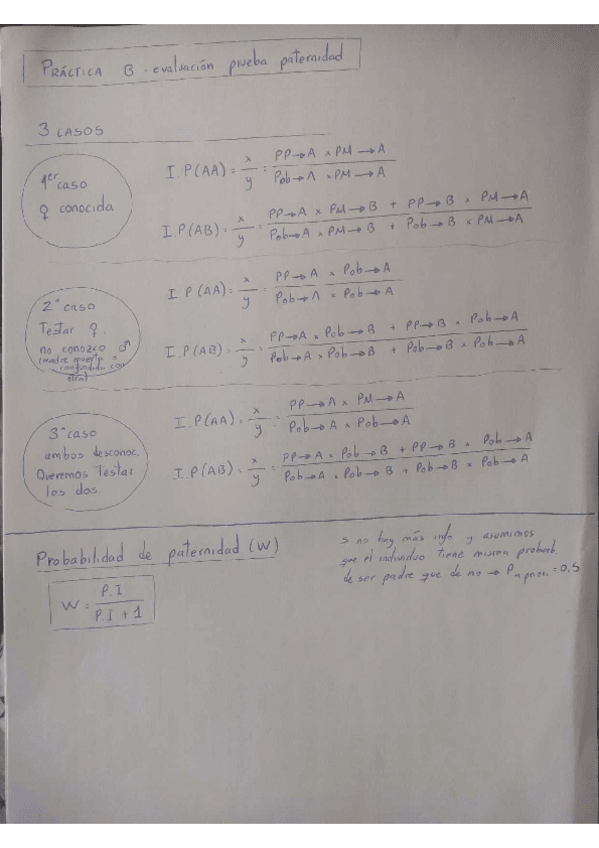 PRÁCTICA B - evaluación prueba paternidad
3 CASOS
1er caso
♀ conocida
I.P(AA) = x/y = PP→A × PM→A / Pob→A × PM→A
I.P(AB) = x/y = PP→A × PM→B + PP→B × PM→A / Pob→A × PM→B + Pob→B × PM→A
2º caso
Testar ♀.
no conozco ♂
(madre muerta o
confundida con
otra)
I.P(AA) = x/y = PP→A × Pob→A / Pob→A × Pob→A
I.P(AB) = x/y = PP→A × Pob→B + PP→B × Pob→A / Pob→A × Pob→B + Pob→B × Pob→A
3º caso
ambos desconoc.
Queremos Testar
los dos.
I.P(AA) = x/y = PP→A × PM→A / Pob→A × Pob→A
I.P(AB) = x/y = PP→A × Pob→B + PP→B × Pob→A / Pob→A × Pob→B + Pob→B × Pob→A
Probabilidad de paternidad (W)
W = P.I / P.I + 1
si no hay más info y asumimos
que el individuo tiene misma probab.
de ser padre que de no → P a priori = 0.5